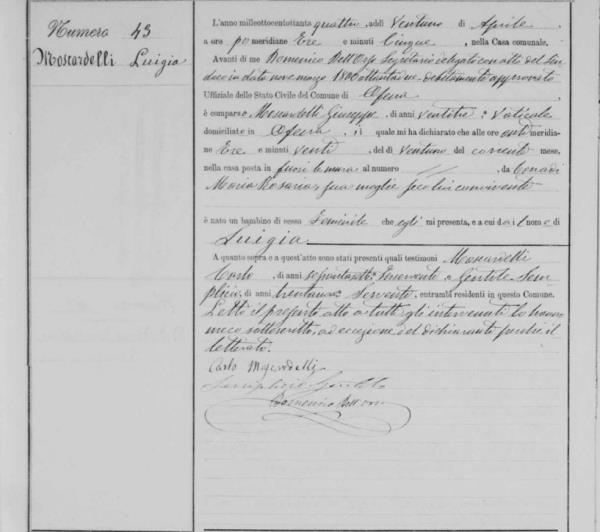 Numero 43
Moscardelli Luigia
L'anno milleottocentottanta quattro, addì Ventuno di Aprile
a ore po meridiane Tre e minuti Cinque, nella Casa comunale.
Avanti di me Domenico Dell'Orso Segretario delegato con atto del Sin
daco in data nove marzo debitamente approvato
Uffiziale dello Stato Civile del Comune di Ofena
è comparso Moscardelli Giuseppe, di anni ventitre
domiciliato in Ofena, il quale mi ha dichiarato che alle ore anti meridia-
ne Tre e minuti venti, del dì Ventuno del corrente mese,
nella casa posta in fuori le mura al numero //, da
Maria Rosaria sua moglie seco lui convivente
è nato un bambino di sesso Feminile che egli mi presenta, e a cui dà il nome di
Luigia
A quanto sopra e a quest'atto sono stati presenti quali testimoni Moscardelli
Carlo, di anni e Gentile Sem-
plicio, di anni trentuno, entrambi residenti in questo Comune.
Letto il presente atto a tutti gli intervenuti lo hanno
meco sottoscritto, ad eccezione del dichiarante perchè il
letterato.
Carlo Moscardelli
Semplicio Gentile
Domenico Dell'Orso